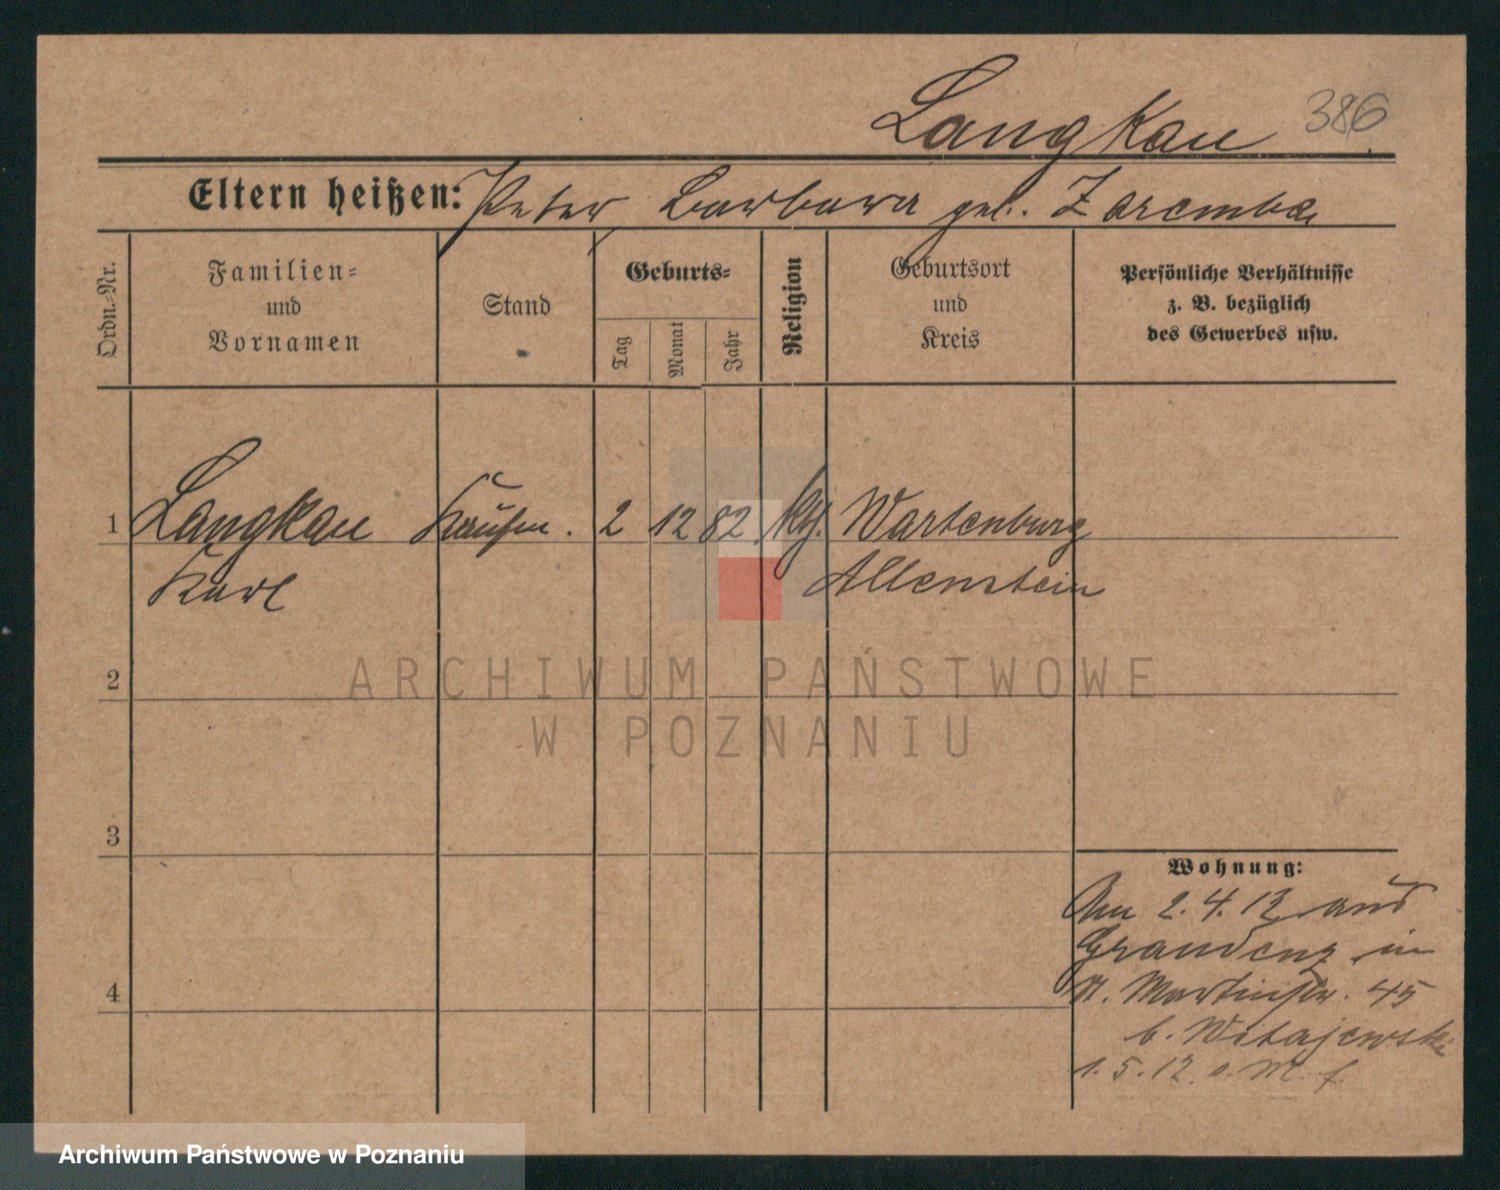 Langkau 386
Eltern heißen: Peter Barbara geb. Zaremba
Ordn.-Nr.
Familien-
und
Vornamen
Stand
Geburts-
Tag
Monat
Jahr
Religion
Geburtsort
und
Kreis
Persönliche Verhältnisse
z. B. bezüglich
des Gewerbes usw.
1 Langkau Kaufm. 2 12 82 kth. Wartenburg
Karl Allenstein
2
3
4
Wohnung:
Am 2. 4. 12 aus
Graudenz in
St. Martinstr. 45
b. Witajewski
1. 5. 12 o. M. f.
ARCHIWUM PAŃSTWOWE
W POZNANIU
Archiwum Państwowe w Poznaniu